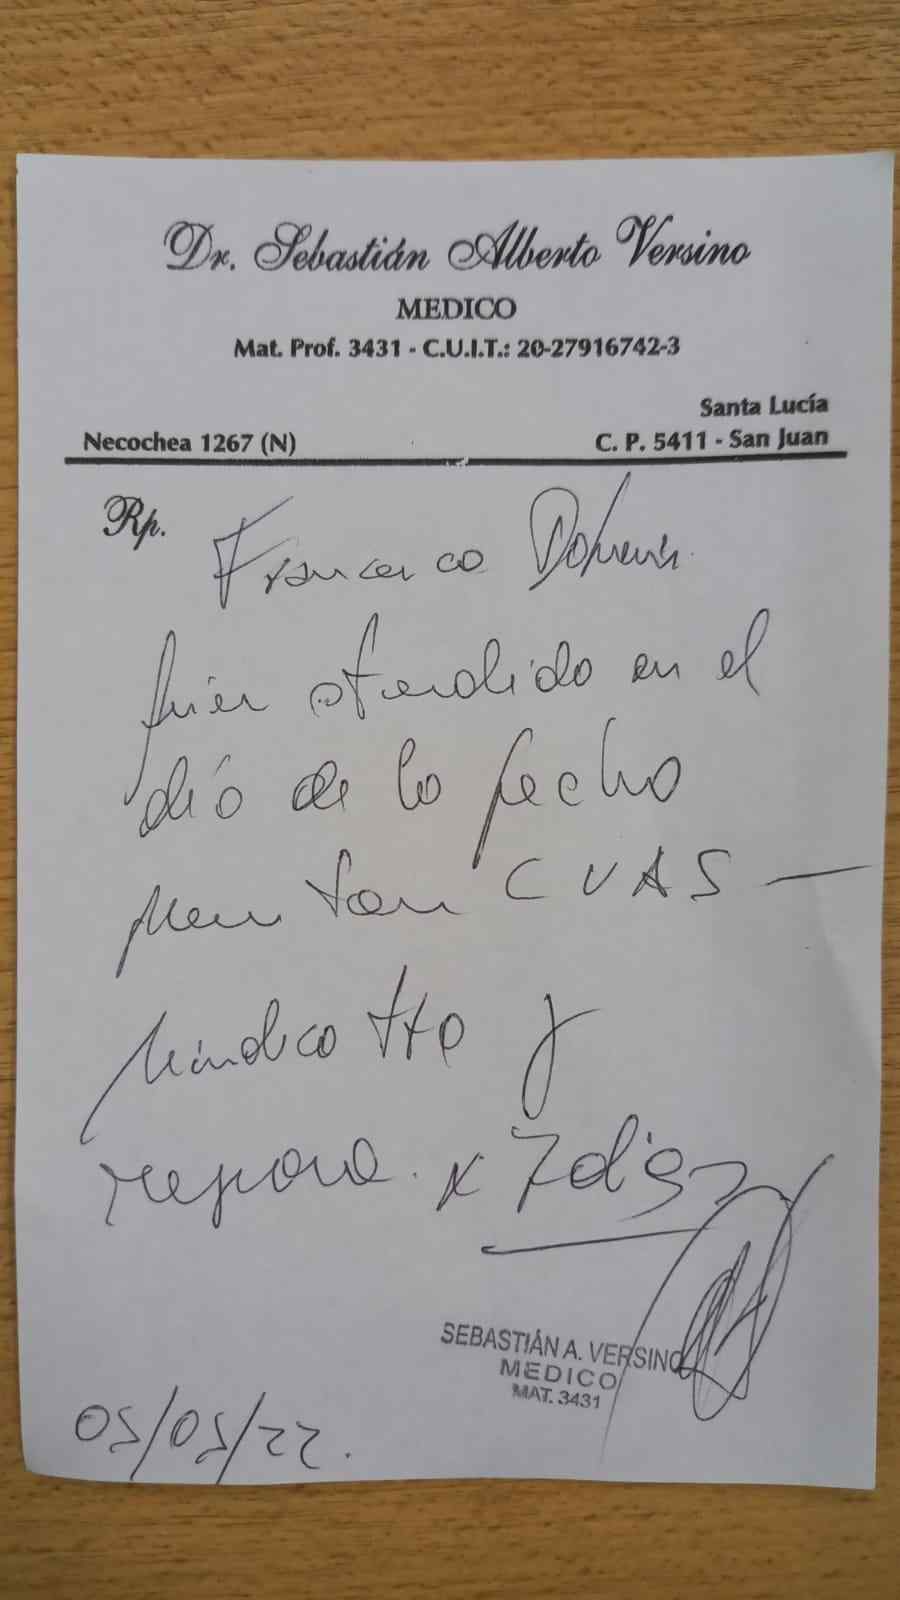 Dr. Sebastián Alberto Versino
MEDICO
Mat. Prof. 3431 - C.U.I.T.: 20-27916742-3
Santa Lucía
Necochea 1267 (N) C. P. 5411 - San Juan
Rp.
Francisco
atendido en el
día de la fecha
CVAS —
indico tto y
reposo x 7 días
SEBASTIÁN A. VERSINO
MEDICO
MAT. 3431
05/05/22.